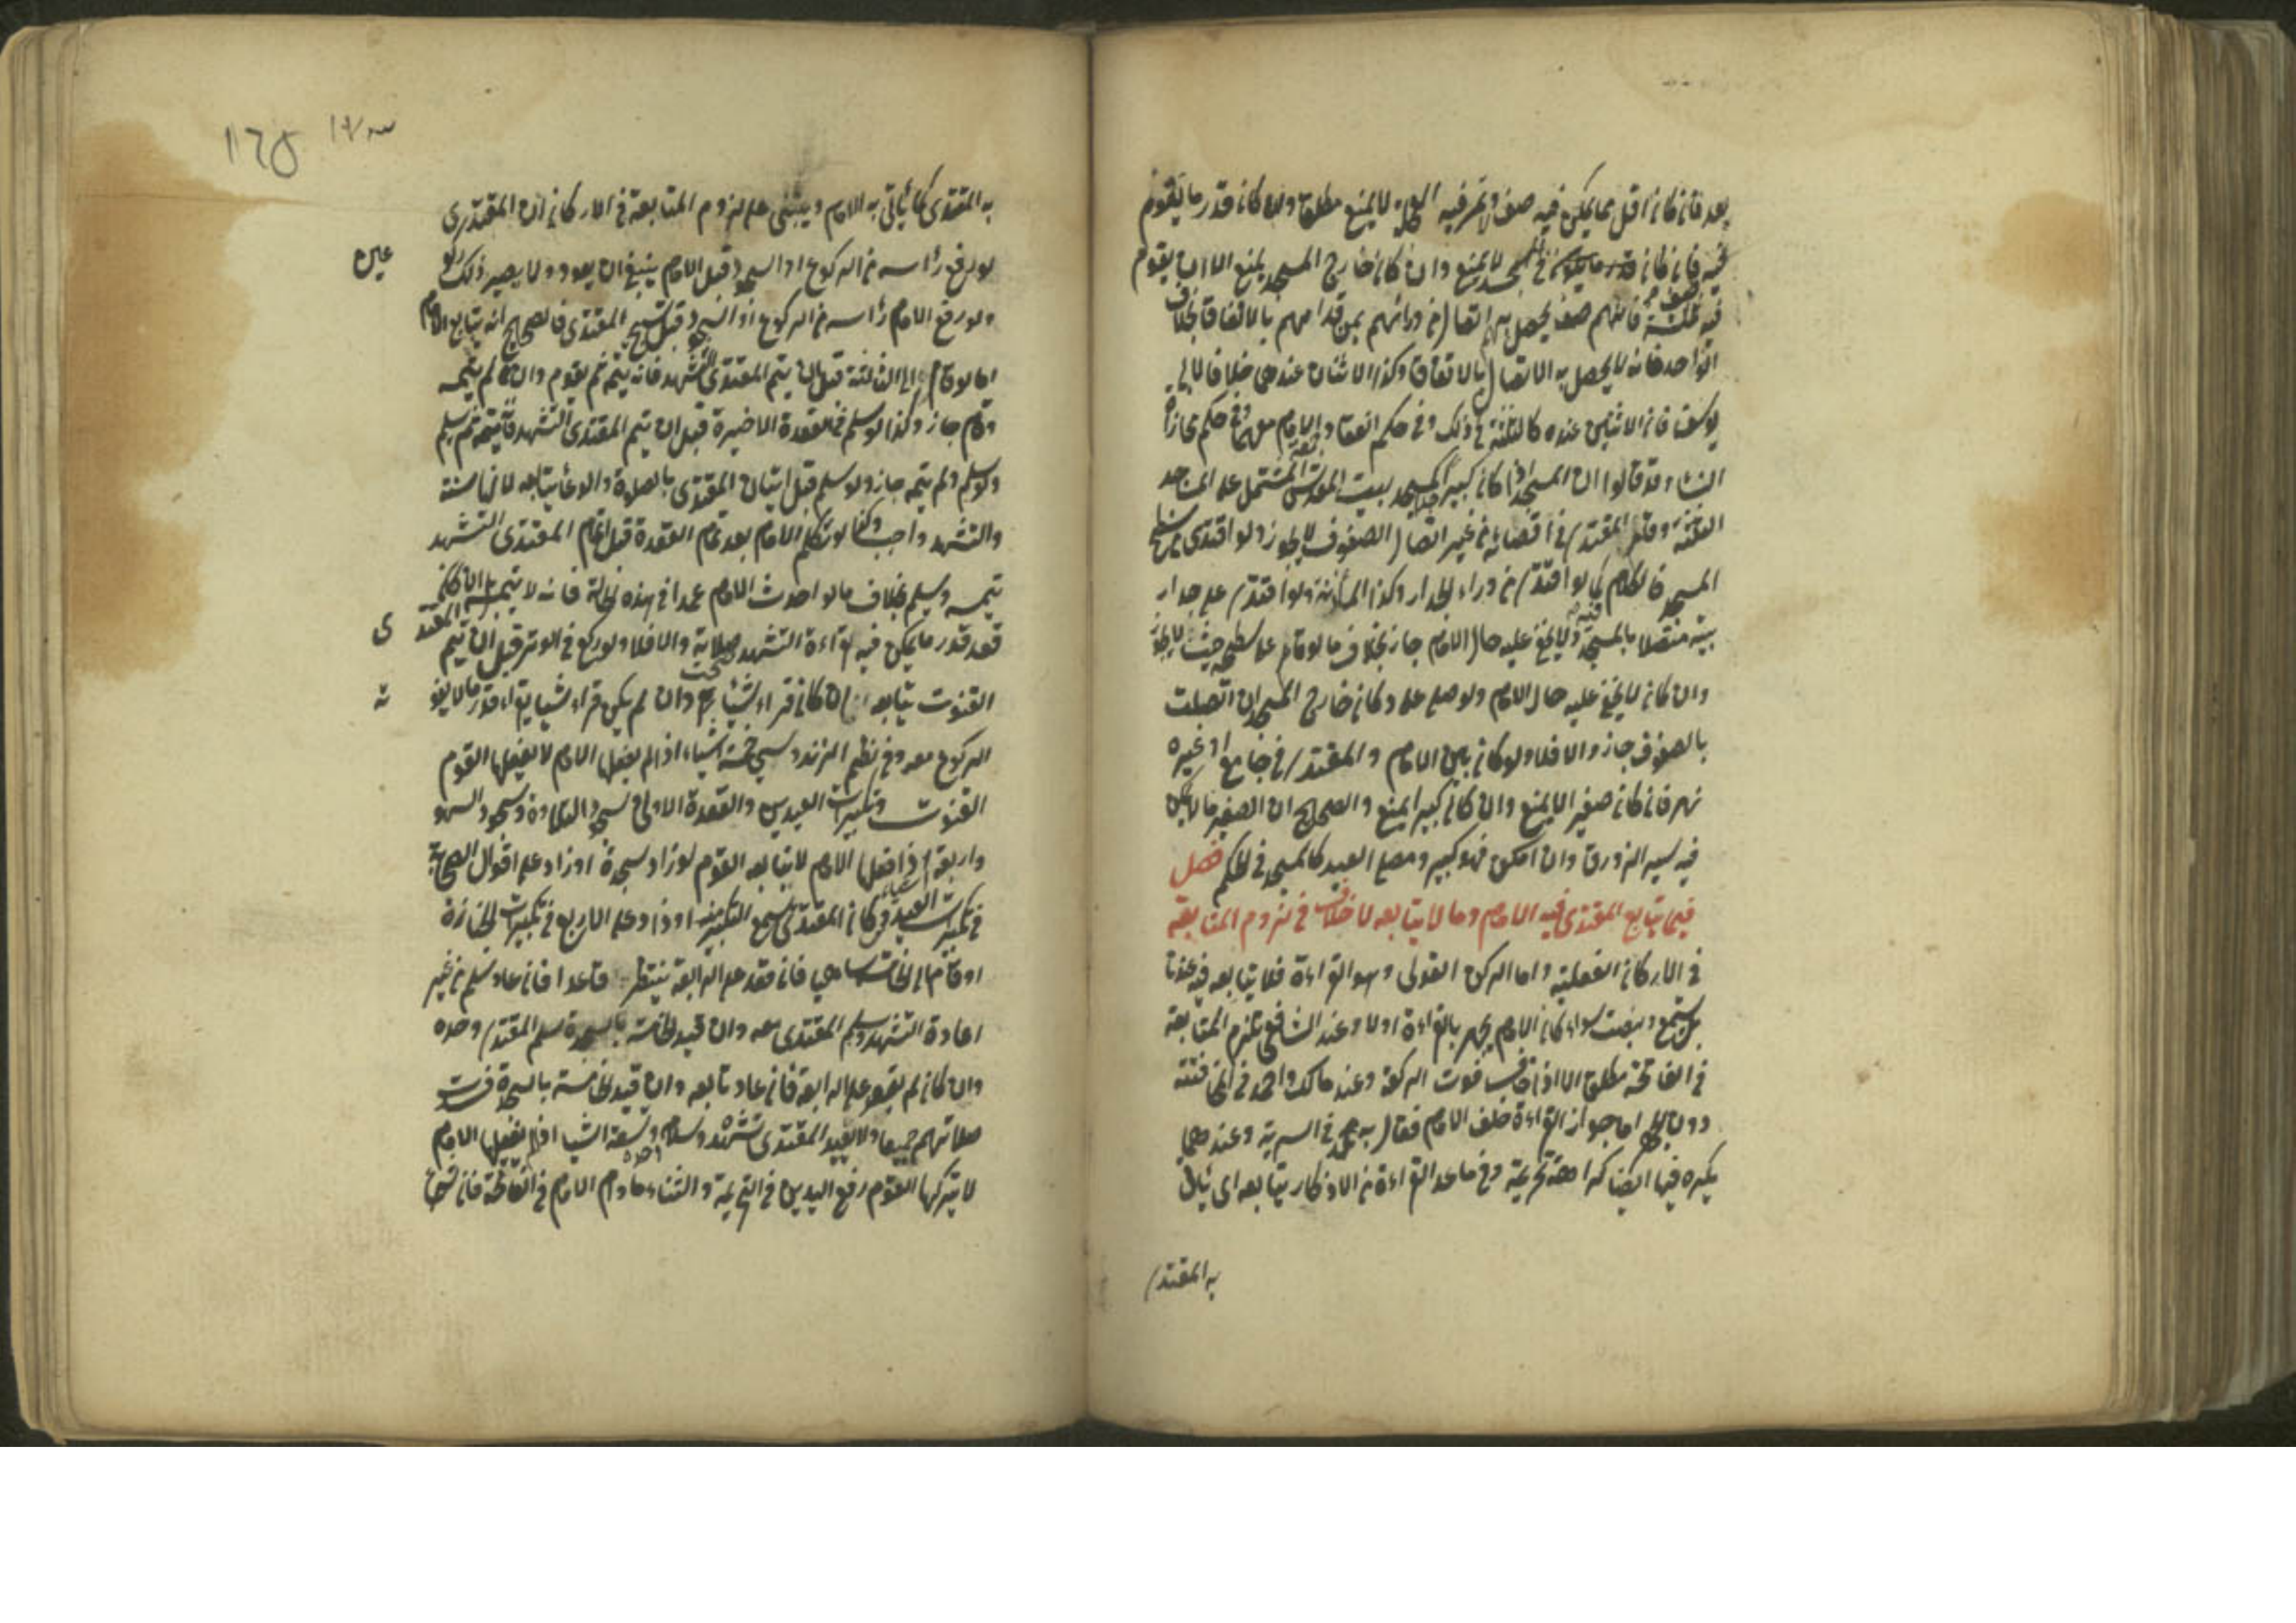 بعد فان كان اقل مما يمكن فيه صف وتمر فيه العجلة لا يمنع مطلقا وان كان قدر ما يقوم
فيه فان كان في المسجد لا يمنع وان كان خارج المسجد يمنع الا ان يقوم
فيه ثلثة فانهم صف يحصل بهم اتصال من ورائهم بمن قدامهم بالاتفاق بخلاف
الواحد فانه لا يحصل به الاتصال بالاتفاق وكذا الاثنان عندهما خلافا لابي
يوسف فان الاثنين عنده كالثلثة في ذلك وفي حكم انعقاد الامام معهما وفي حكم محاذاة
النساء وقد قالوا ان المسجد اذا كان كبيرا كمسجد بيت المقدس المشتمل على المساجد
الثلثة وقام المقتدي في اقصائه من غير اتصال الصفوف لا يجوز ولو اقتدى من خارج
المسجد فالكلام كما لو اقتدى من وراء الجدار وكذا المأذنة ولو اقتدى على جدار
بيته متصلا بالمسجد ولا يخفى عليه حال الامام جاز بخلاف ما لو قام على سطحه حيث لا يجوز
وان كان لا يخفى عليه حال الامام ولو صلى على دكان خارج المسجد ان اتصلت
بالصفوف جاز والا فلا ولو كان بين الامام والمقتدي في جامع او غيره
نهر فان كان صغيرا لا يمنع وان كان كبيرا يمنع والصحيح ان الصغير ما لا يمكن
فيه سير الزورق وان امكن فهو كبير ومصلى العيد كالمسجد في الحكم فصل
فيما يتابع المقتدى فيه الامام وما لا يتابعه لا خلاف في لزوم المتابعة
في الاركان الفعلية واما الركن القولي وهو القراءة فلا يتابعه فيه عندنا
بل يستمع وينصت سواء كان الامام يجهر بالقراءة او لا وعند الشافعي تلزم المتابعة
في الفاتحة مطلقا الا اذا خاف فوت الركعة وعند مالك واحمد في المخافتة
دون الجهر اما جواز القراءة خلف الامام فقال به محمد في السرية وعندهما
يكره فيها ايضا كراهة تحريمة وفي ما عدا القراءة من الاذكار يتابعه اي يأتي
به المقتدي
به المقتدى كما يأتي به الامام ويبتنى على لزوم المتابعة في الاركان ان المقتدى
لو رفع رأسه من الركوع او السجود قبل الامام ينبغي ان يعود ولا يصير ذلك ركو
عين
ولو رفع الامام رأسه من الركوع او السجود قبل تسبيح المقتدى فالصحيح انه يتابع الامام
اما لو قام الى الثالثة قبل ان يتم المقتدى التشهد فانه يتمه ثم يقوم وان لم يتمه
وقام جاز وكذا لو سلم في القعدة الاخيرة قبل ان يتم المقتدى التشهد فانه يتمه ثم يسلم
ولو سلم ولم يتمه جاز ولو سلم قبل اتيان المقتدى بالصلوة والدعاء يتابعه لانها سنة
والتشهد واجب وكذا لو تكلم الامام بعد تمام القعدة قبل اتمام المقتدى التشهد
يتمه ويسلم بخلاف ما لو احدث الامام عمدا في هذه الحالة فانه لا يتم بل ان كان
قعد قدر ما يمكن فيه قراءة التشهد صحت صلاته والا فلا ولو ركع في الوتر قبل ان يتم المقتد
ى
القنوت يتابعه ان كان قراء شيئا وان لم يكن قراء شيئا يقراء قدر ما لا يفو
ته
الركوع معه وفي نظم الزندوسبي خمسة اشياء اذا لم يفعلها الامام لا يفعلها القوم
القنوت وتكبيرات العيدين والقعدة الاولى وسجود التلاوة وسجود السهو
واربعة اذا فعلها الامام لا يتابعه القوم لو زاد سجدة او زاد على اقوال الصحابة
في تكبيرات العيد وكان المقتدى يسمع التكبير منه او زاد على الاربع في تكبيرات الجنازة
او قام الى الخامسة ساهيا فان قعد على الرابعة ينتظر قاعدا فان عاد وسلم من غير
اعادة التشهد وسلم المقتدى معه وان قيد الخامسة بالسجدة سلم المقتدي وحده
وان كان لم يقعد على الرابعة فان عاد تابعه وان قيد الخامسة بالسجدة فسدت
صلاتهم جميعا ولا يفيد المقتدى تشهده وسلامه وحده وتسعة اشياء اذا لم يفعلها الامام
لا يتركها القوم رفع اليدين في التحريمة والثناء مادام الامام في الفاتحة فان شرع